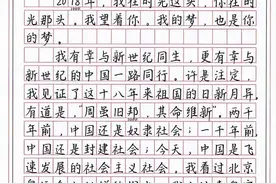 2018年，我在时光这头，你在时
光那头。我望着你。我的梦，也是你
的梦。
我有幸与新世纪同生，更有幸与
新世纪的中国一路同行。许是注定，
我见证了这十八年来祖国的日新月异。
有道是，“周虽旧邦，其命维新”，两千
年前，中国还是奴隶社会；一千年前，
中国还是封建社会；今天，中国是飞
速发展的社会主义社会。我看过北京